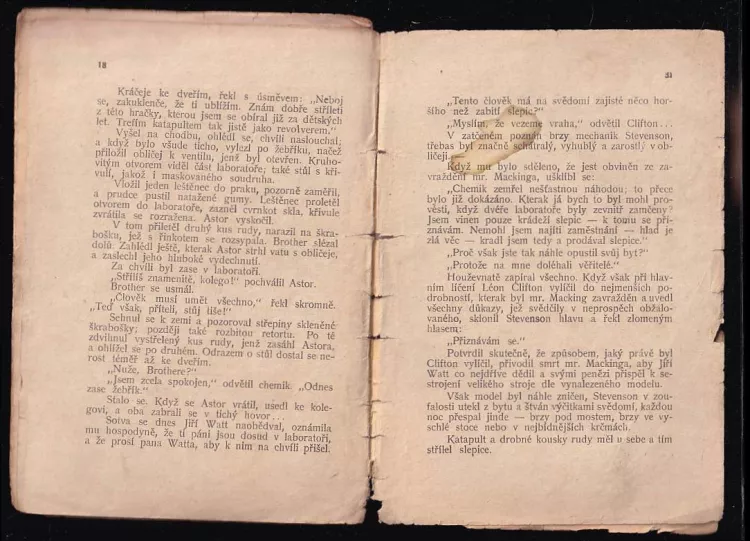 18
Kráčeje ke dveřím, řekl s úsměvem: „Neboj
se, zakuklenče, že ti ublížím. Znám dobře stříleti
z této hračky, kterou jsem se obíral již za dětských
let. Trefím katapultem tak jistě jako revolverem.“
Vyšel na chodbu, ohlédl se, chvíli naslouchal,
a když bylo všude ticho, vylezl po žebříku, načež
přiložil obličej k ventilu, jenž byl otevřen. Kruho-
vitým otvorem viděl část laboratoře; také stůl s kři-
vulí, jakož i maskovaného soudruha.
Vložil jeden leštěnec do praku, pozorně zaměřil,
a prudce pustil natažené gumy. Leštěnec proletěl
otvorem do laboratoře, zazněl cvrnkot skla, křivule
zvrátila se rozražena. Astor vyskočil.
V tom přiletěl druhý kus rudy, narazil na škra-
bošku, jež s řinkotem se rozsypala. Brother slézal
dolů. Zahlédl ještě, kterak Astor strhl vatu s obličeje,
a zaslechl jeho hluboké vydechnutí.
Za chvíli byl zase v laboratoři.
„Střílíš znamenitě, kolego!“ pochválil Astor.
Brother se usmál.
„Člověk musí umět všechno,“ řekl skromně.
„Teď však, příteli, stůj tiše!“
Sehnul se k zemi a pozoroval střepiny skleněné
škrabošky; později také rozbitou retortu. Po té
zdvihnul vystřelený kus rudy, jenž zasáhl Astora,
a ohlížel se po druhém. Odrazem o stůl dostal se ne-
rost téměř až ke dveřím.
„Nuže, Brothere?“
„Jsem zcela spokojen,“ odvětil chemik. “Odnes
zase žebřík.“
Stalo se. Když se Astor vrátil, usedl ke kole-
govi, a oba zabrali se v tichý hovor...
Sotva se dnes Jiří Watt naobědval, oznámila
mu hospodyně, že ti páni jsou dosud v laboratoři,
a že prosí pana Watta, aby k nim na chvíli přišel.
31
„Tento člověk má na svědomí zajisté něco hor-
šího než zabití slepic?“
„Myslím, že vezeme vraha,“ odvětil Clifton...
V zatčeném poznán brzy mechanik Stevenson,
třebas byl značně schátralý, vyhublý a zarostlý v ob-
ličeji.
Když mu bylo sděleno, že jest obviněn ze za-
vraždění mr. Mackinga, ušklíbl se:
„Chemik zemřel nešťastnou náhodou; to přece
bylo již dokázáno. Kterak já bych to byl mohl pro-
vésti, když dvéře laboratoře byly zevnitř zamčeny?
Jsem vinen pouze krádeží slepic — k tomu se při-
znávám. Nemohl jsem najíti zaměstnání — hlad je
zlá věc — kradl jsem tedy a prodával slepice.“
„Proč však jste tak náhle opustil svůj byt?“
„Protože na mne doléhali věřitelé.“
Houževnatě zapíral všechno. Když však při hlav-
ním líčení Léon Clifton vylíčil do nejmenších po-
drobností, kterak byl mr. Macking zavražděn a uvedl
všechny důkazy, jež svědčily v neprospěch obžalo-
vaného, sklonil Stevenson hlavu a řekl zlomeným
hlasem:
„Přiznávám se.“
Potvrdil skutečně, že způsobem, jaký právě byl
Clifton vylíčil, přivodil smrt mr. Mackinga, aby Jiří
Watt co nejdříve dědil a svými penězi přispěl k se-
strojení velikého stroje dle vynalezeného modelu.
Však model byl náhle zničen, Stevenson v zou-
falosti utekl z bytu a štván výčitkami svědomí, každou
noc přespal jinde — brzy pod mostem, brzy ve vy-
schlé stoce nebo v nejbídnějších krčmách.
Katapult a drobné kousky rudy měl u sebe a tím
střílel slepice.